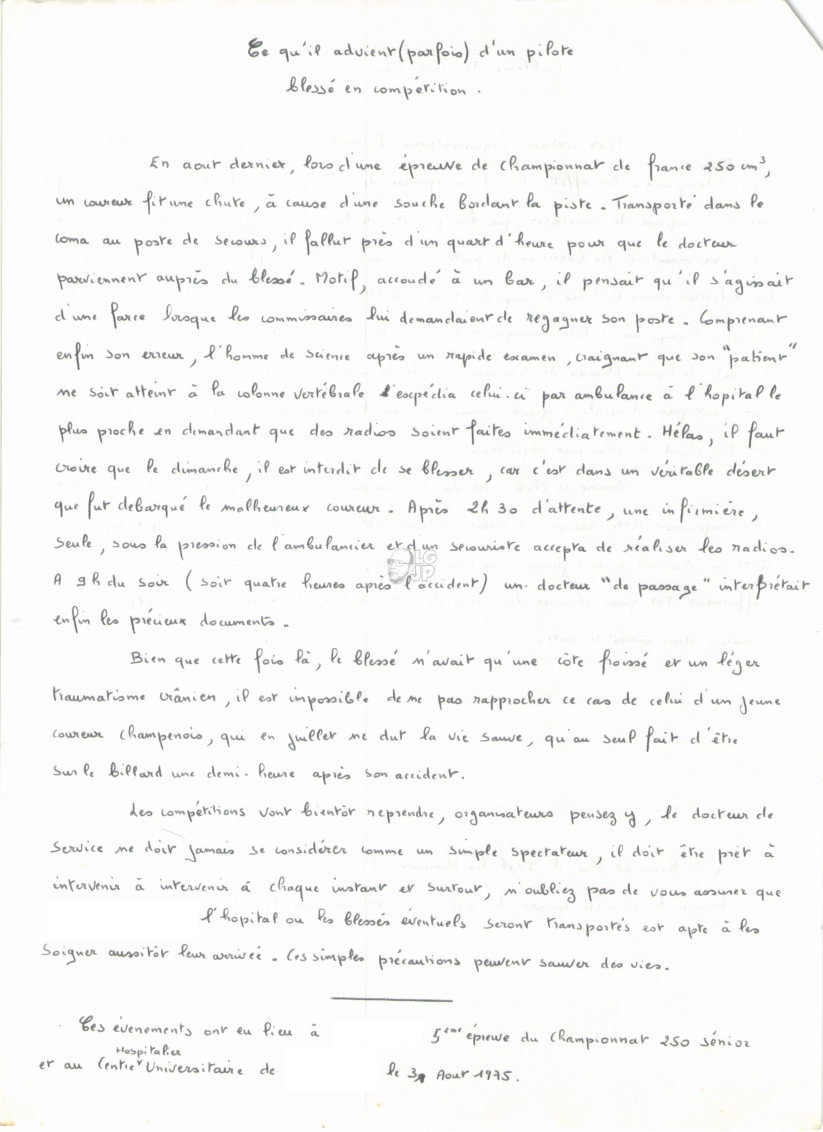 Ce qu'il advient (parfois) d'un pilote
blessé en compétition.
En aout dernier, lors d'une épreuve de championnat de france 250 cm³,
un coureur fit une chute, à cause d'une souche bordant la piste. Transporté dans le
coma au poste de secours, il fallut près d'un quart d'heure pour que le docteur
parviennent auprès du blessé. Motif, accoudé à un bar, il pensait qu'il s'agissait
d'une farce lorsque les commissaires lui demandaient de regagner son poste. Comprenant
enfin son erreur, l'homme de science après un rapide examen, craignant que son "patient"
ne soit atteint à la colonne vertébrale l'expédia celui-ci par ambulance à l'hopital le
plus proche en demandant que des radios soient faites immédiatement. Hélas, il faut
croire que le dimanche, il est interdit de se blesser, car c'est dans un véritable désert
que fut debarqué le malheureux coureur. Après 2h 30 d'attente, une infirmière,
seule, sous la pression de l'ambulancier et d'un secouriste accepta de réaliser les radios.
A 9h du soir (soit quatre heures après l'accident) un docteur "de passage" interprétait
enfin les précieux documents.
Bien que cette fois là, le blessé n'avait qu'une côte froissé et un léger
traumatisme crânien, il est impossible de ne pas rapprocher ce cas de celui d'un jeune
coureur champenois, qui en juillet ne dut la vie sauve, qu'au seul fait d'être
sur le billard une demi-heure après son accident.
Les compétitions vont bientôt reprendre, organisateurs pensez y, le docteur de
service ne doit jamais se considérer comme un simple spectateur, il doit être prêt à
intervenir à intervenir à chaque instant et surtout, n'oubliez pas de vous assurer que
l'hopital ou les blessés éventuels seront transportés est apte à les
soigner aussitôt leur arrivée. Ces simples précautions peuvent sauver des vies.
Ces évenements ont eu lieu à 5ème épreuve du Championnat 250 sénior
et au Centre Hospitalier Universitaire de le 31 Aout 1975.
LG
JP